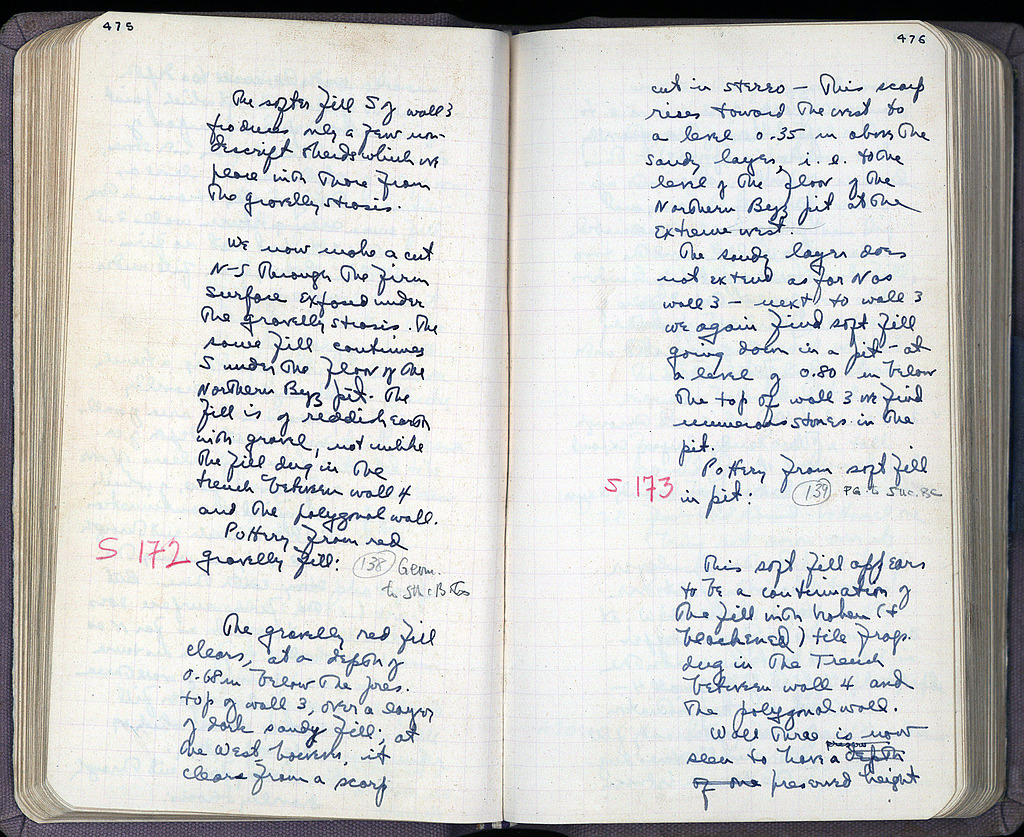 475
The softer fill S of wall 3
produces only a few non-
descript sherds which we
place with those from
the gravelly stosis.
We now make a cut
N-S through the firm
surface exposed under
the gravelly stosis. The
same fill continues
S under the floor of the
Northern Byz pit. The
fill is of reddish earth
with gravel, not unlike
the fill dug in the
trench between wall 4
and the polygonal wall.
Pottery from red
S 172 gravelly fill: 138 Geom.
to 5th c. B
The gravelly red fill
clears, at a depth of
0.68 m below the pres.
top of wall 3, over a layer
of dark sandy fill; at
the West, however, it
clears from a scarp
476
cut in stereo — This scarp
rises toward the west to
a level 0.35 m above the
sandy layer, i. e. to the
level of the floor of the
Northern Byz pit at the
extreme west.
The sandy layer does
not extend as far N as
wall 3 — next to wall 3
we again find soft fill
going down in a pit — at
a level of 0.80 m below
the top of wall 3 we find
numerous stones in the
pit.
Pottery from soft fill
S 173 in pit. 139 PG to 5th c. BC
This soft fill appears
to be a continuation of
the fill with broken (+
blackened) tile frags.
dug in the Trench
between wall 4 and
the polygonal wall.
Wall Three is now
seen to have a depth
of one preserved height